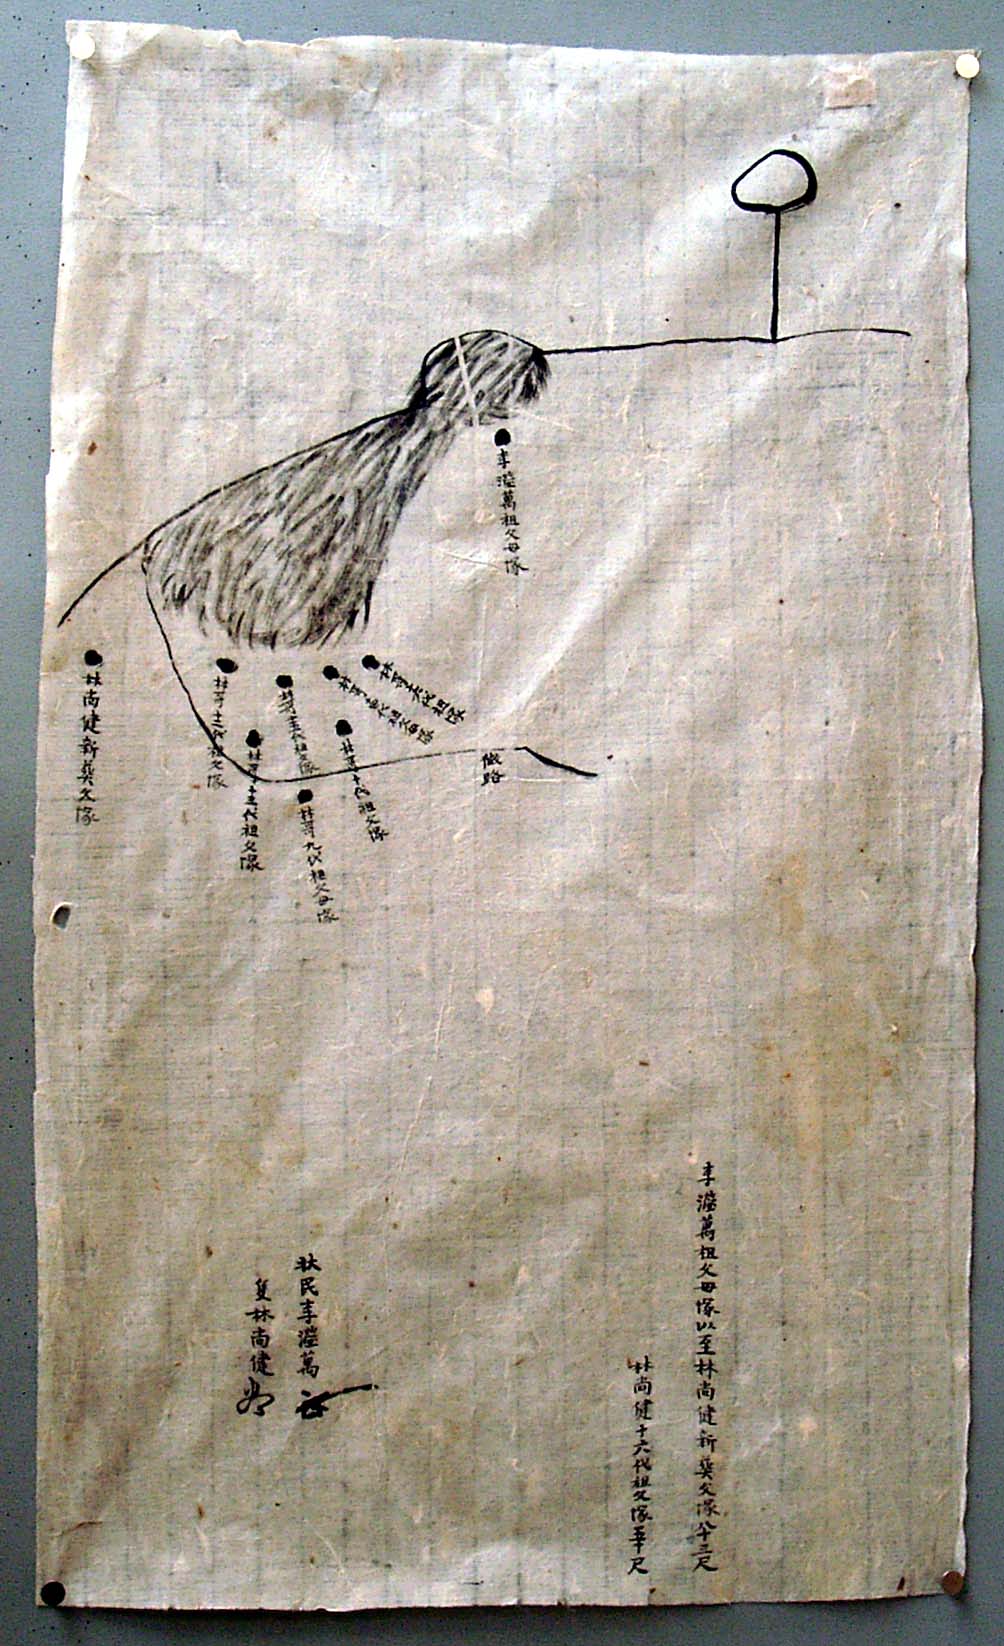 李溢萬祖父母塚
林哥十六代祖塚
林哥十五代祖父母塚
林哥十代祖父塚
林哥九代祖父母塚
林哥十三代祖父塚
林哥十二代祖父塚
林尚健新葬父塚
路
李溢萬祖父母塚以至林尚健新葬父塚八十三尺
林尚健十六代祖父塚五十尺
狀民李溢萬
隻林尚健